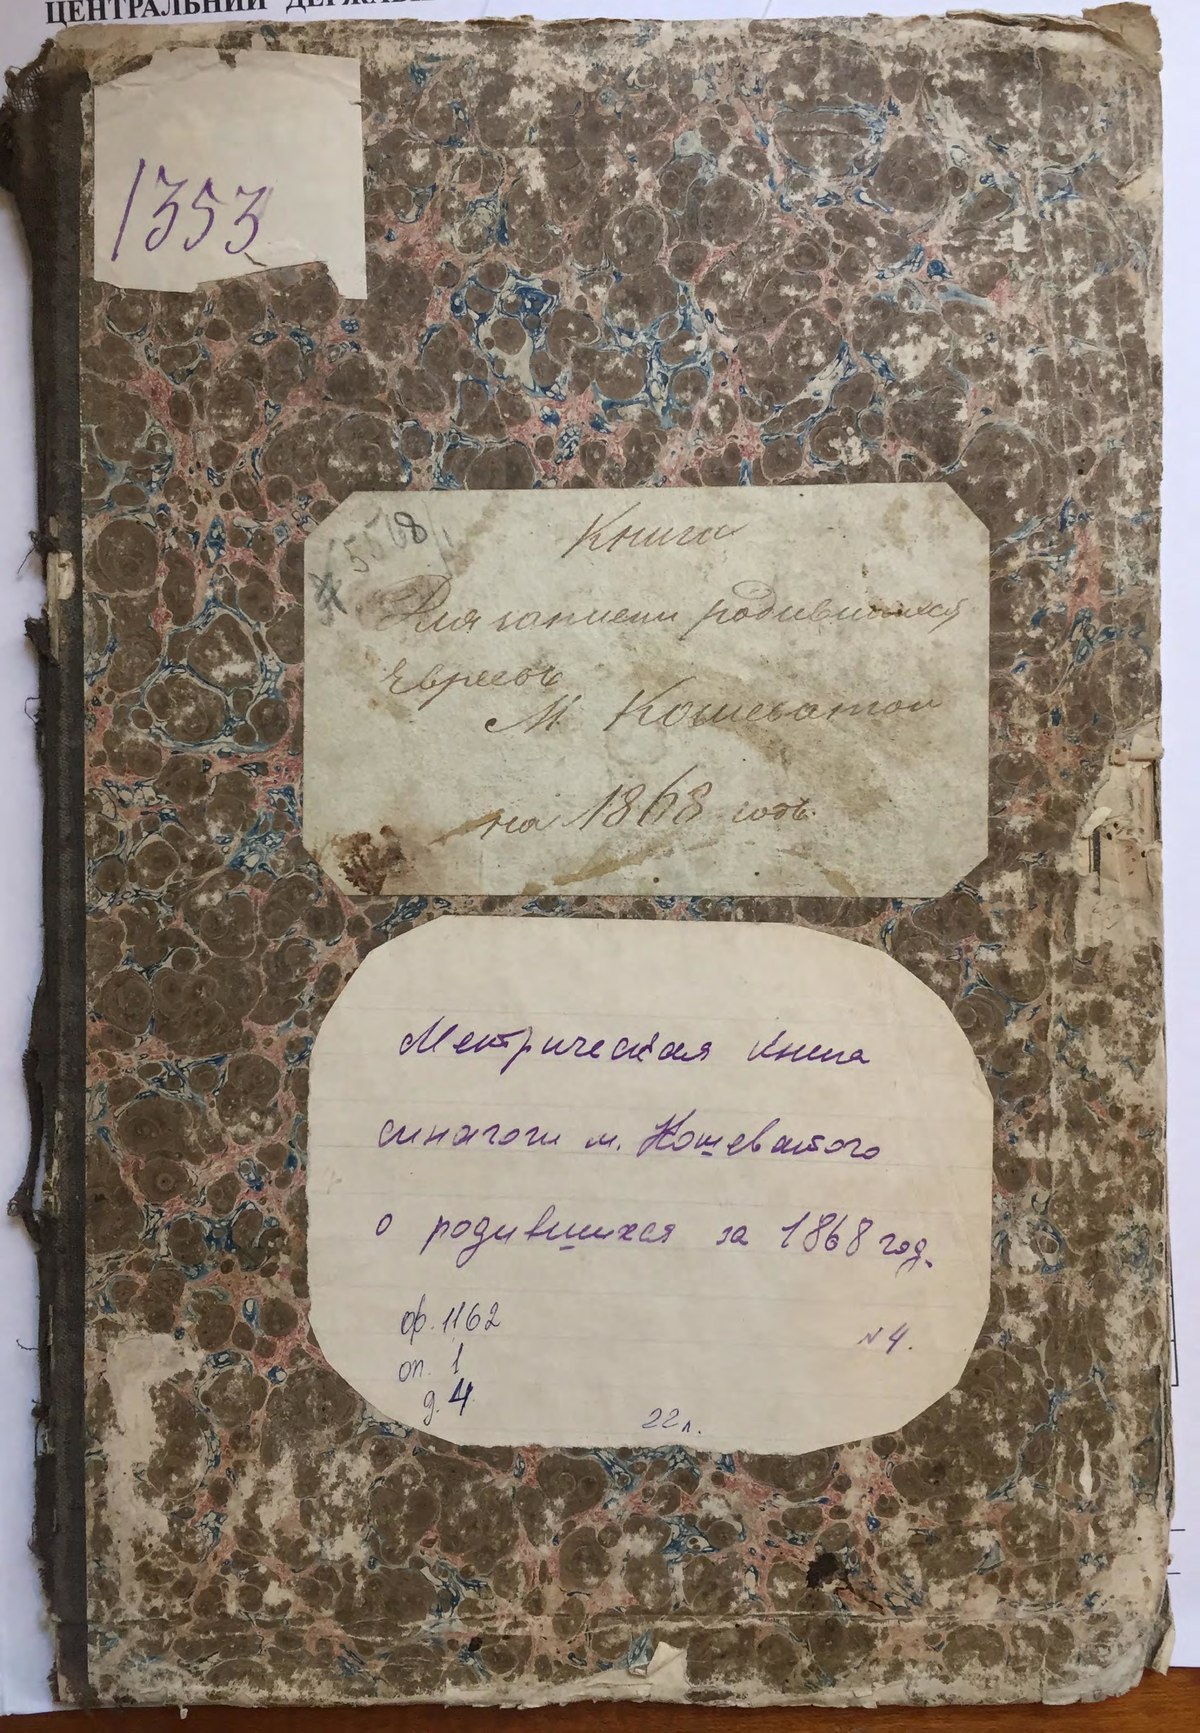 ЦЕНТРАЛЬНИЙ ДЕРЖАВН
1353
5508/1
Книга
Для записки родившихся
Евреевъ
М. Кошеватой
на 1868 годъ.
Метрическая книга
синагоги м. Кошеватого
о родившихся за 1868 год.
ф. 1162
оп. 1
д. 4
N 4.
22 л.